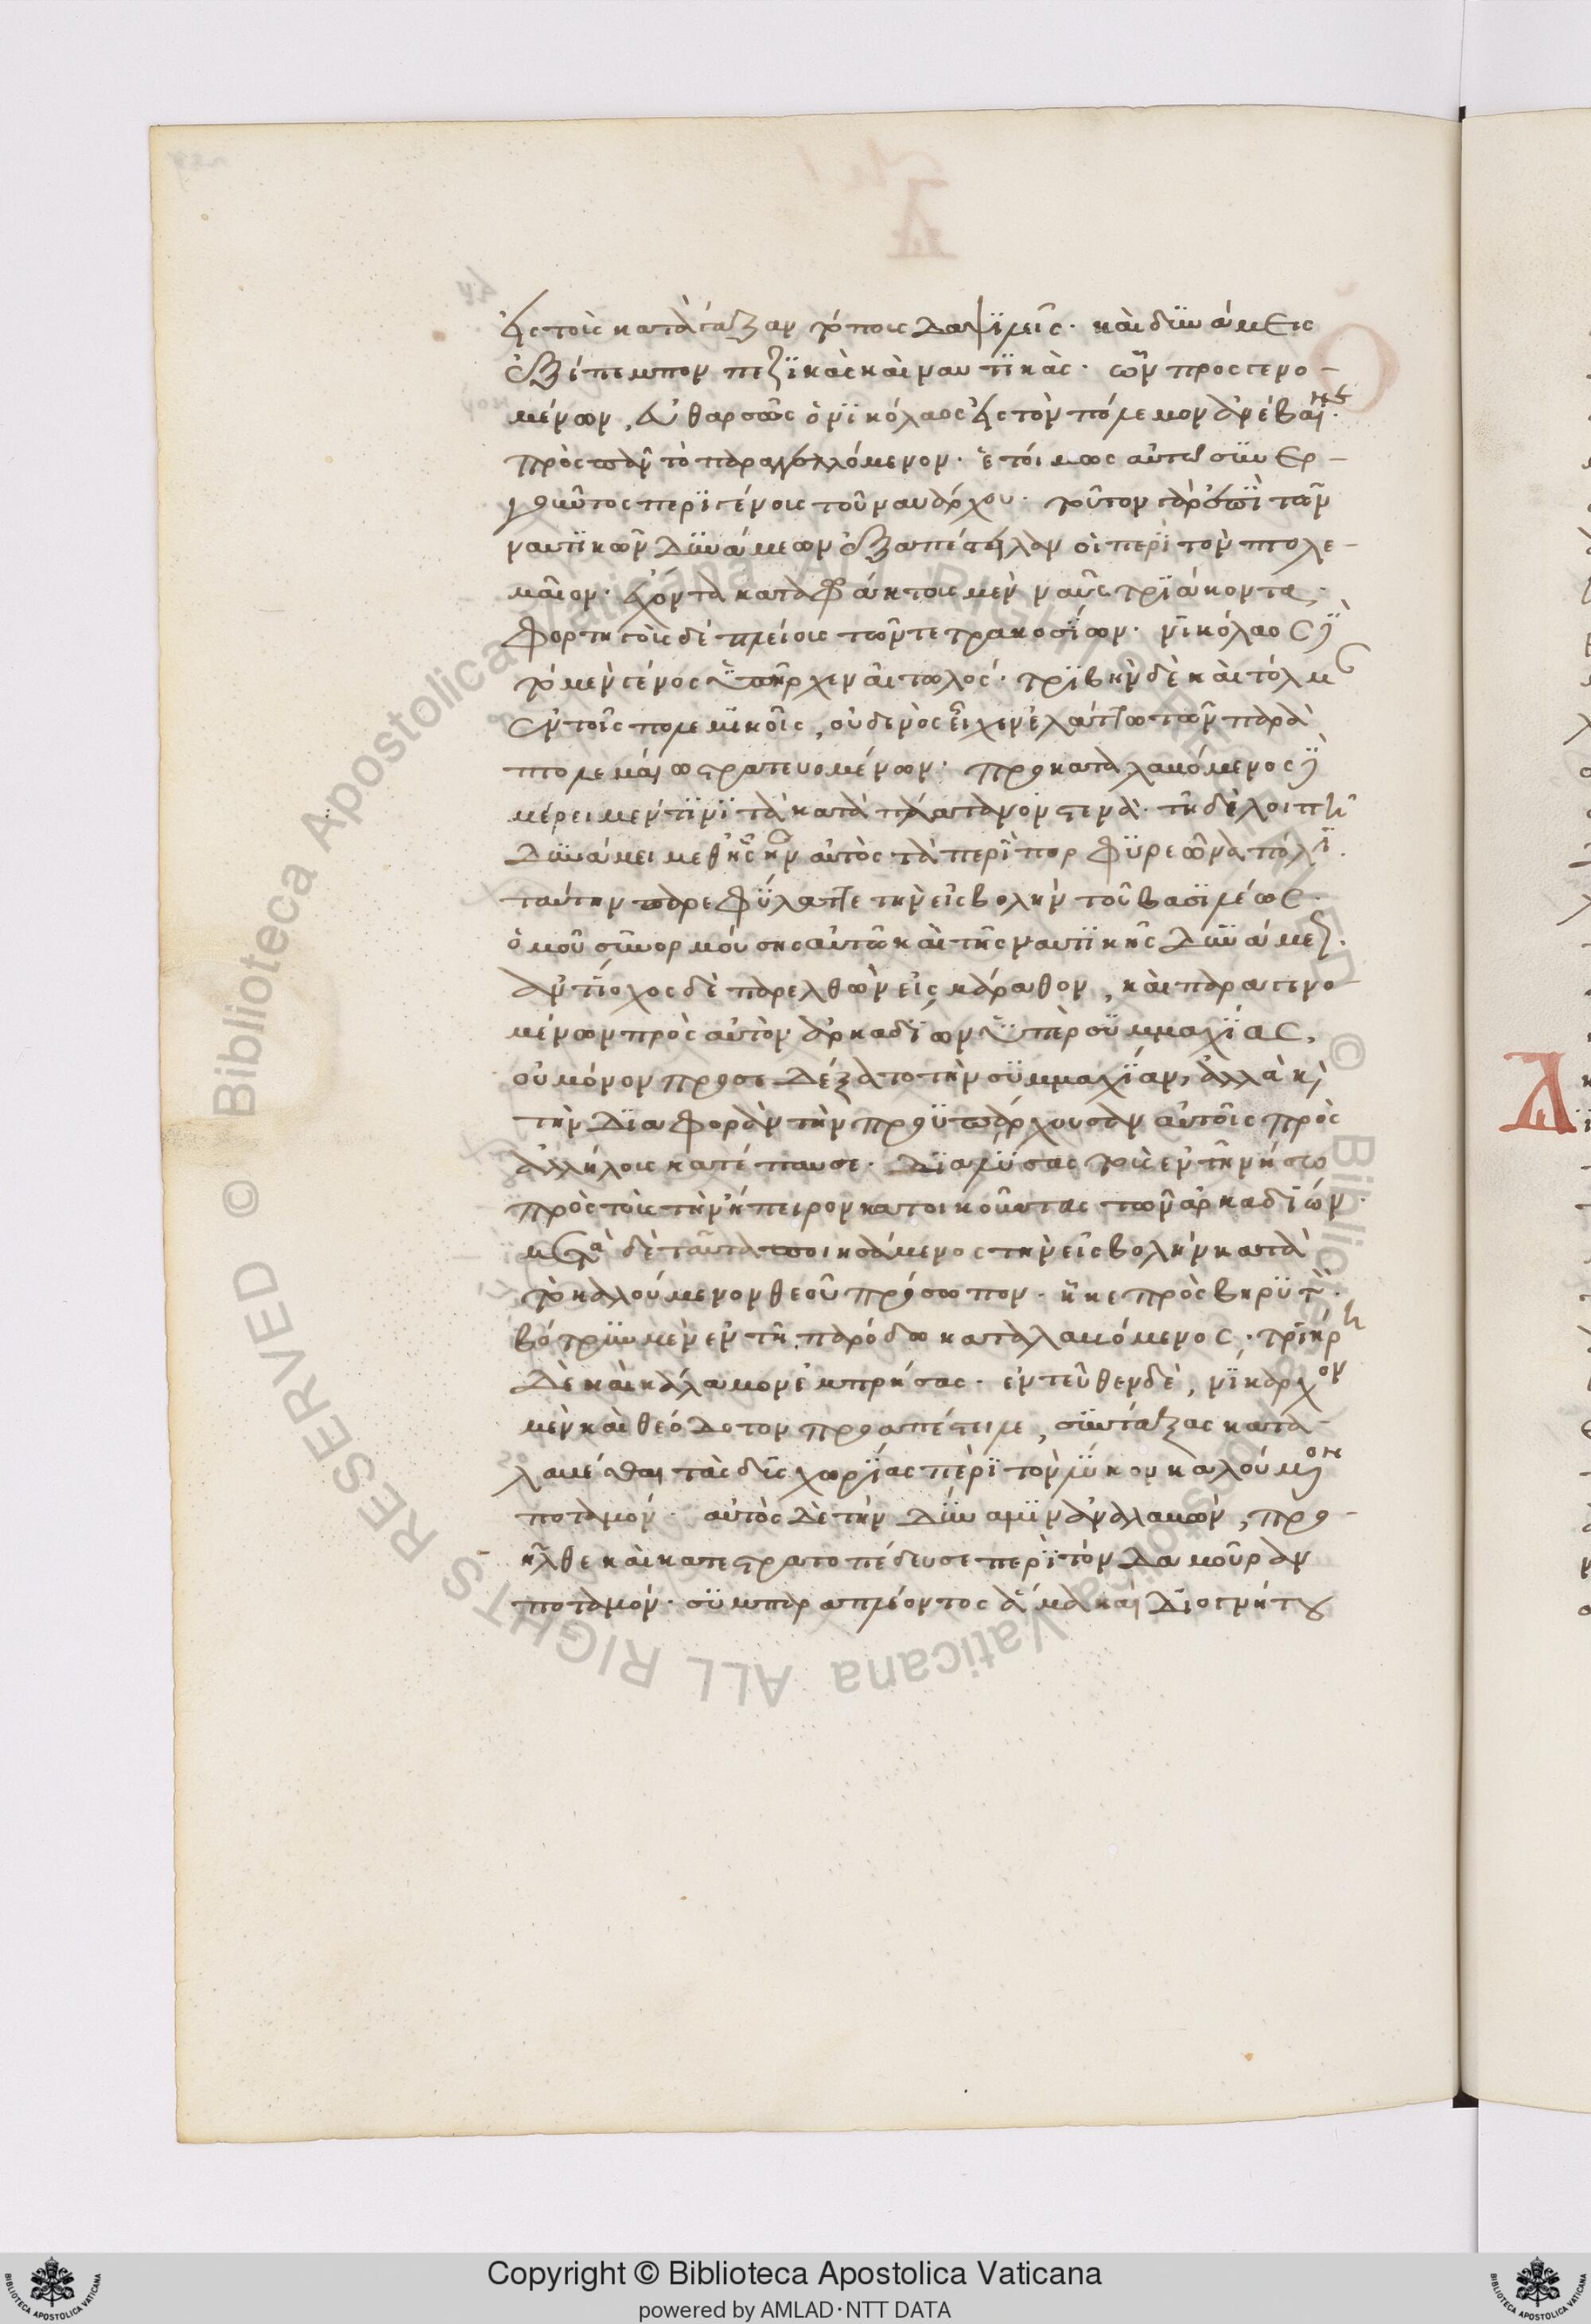 εἰς τοὺς κατὰ γάζαν τόπους δαψϊλεῖς· καὶ δϋνάμεις
ἐξέπεμπον πεζϊκὰς καὶ ναυτϊκὰς· ὧν προσγενο-
μένων, εὐθαρσῶς ὁ νϊκόλαος εἰς τὸν πόλεμον ἀνέβαινε·
πρὸς πᾶν τὸ παραγγελλόμενον· ἑτοίμως αὐτῶ σϋνερ-
γοῦντος περϊγένους τοῦ ναυάρχου· τοῦτον γὰρ ἐπὶ τῶν
ναυτϊκῶν δϋνάμεων ἐξαπέστειλαν οἱ περὶ τὸν πτολε-
μαῖον· ἔχοντα καταφράκτους μὲν ναῦς τρϊάκοντα,
φορτηγοὺς δὲ πλείους τῶν τετρακοσΐων· νϊκόλαος δὲ
τὸ μὲν γένος ὑπῆρχεν αἰτωλός· τρϊβὴν δὲ καὶ τόλμαν
ἐν τοῖς πολεμϊκοῖς, οὐδενὸς εἶχεν ἐλάττω τῶν παρὰ
πτολεμαίω στρατευομένων· προκαταλαβόμενος δὲ
μέρει μὲν τϊνὶ τὰ κατὰ πλάτανον στενὰ· τῆ δὲ λοιπῆ
δϋνάμει μεθ' ἧς ἦν αὐτὸς τὰ περὶ πορφϋρεῶνα πόλιν·
ταύτην παρεφΰλαττε τὴν εἰσβολὴν τοῦ βασϊλέως·
ὁμοῦ σϋνορμούσης αὐτῶ καὶ τῆς ναυτϊκῆς δϋνάμεως·
ἀντΐοχος δὲ παρελθὼν εἰς μάραθον, καὶ παραγενο-
μένων πρὸς αὐτὸν ἀραδΐων ὑπὲρ σϋμμαχΐας,
οὐ μόνον προσεδέξατο τὴν σϋμμαχΐαν, ἀλλὰ καὶ
τὴν δϊαφορὰν τὴν προϋπάρχουσαν αὐτοῖς πρὸς
ἀλλήλους κατέπαυσε· δϊαλΰσας τοὺς ἐν τῆ νήσω
πρὸς τοὺς τὴν ἤπειρον κατοικοῦντας τῶν ἀραδΐων·
μετὰ δὲ ταῦτα ποιησάμενος τὴν εἰσβολὴν κατὰ
τὸ καλούμενον θεοῦ πρόσωπον· ἧκε πρὸς βηρϋτὸν·
βότρϋν μὲν ἐν τῆ παρόδω καταλαβόμενος· τρϊήρη
δὲ καὶ κάλαμον ἐμπρήσας· ἐντεῦθεν δὲ, νΐκαρχον
μὲν καὶ θεόδοτον προαπέστειλε, σϋντάξας κατα-
λαβέσθαι τὰς δυσχωρΐας περὶ τὸν λΰκον καλούμενον
ποταμόν· αὐτὸς δὲ τὴν δΰναμϊν ἀναλαβὼν, προ-
ῆλθε καὶ κατεστρατοπέδευσε περὶ τὸν δαμούραν
ποταμόν· σϋμπαραπλέοντος ἅμα καὶ δϊογνήτου